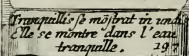 Tranquillis se mõstrat in undis
Elle se montre dans l'eau
tranquille. 19